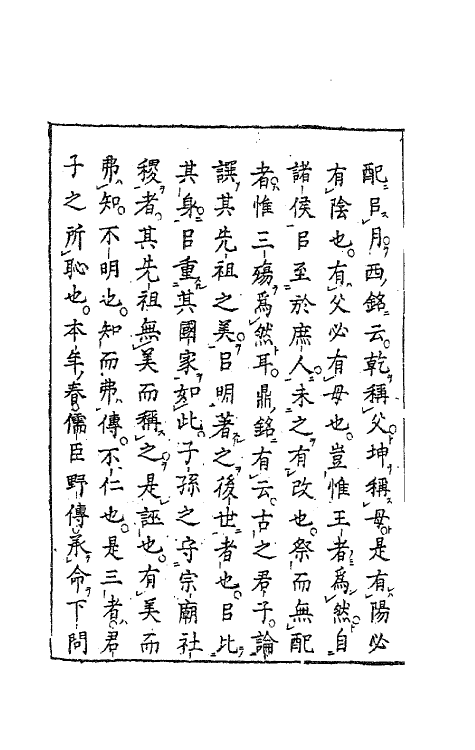 配㠯月西銘云乾稱父坤稱母是有陽必
有陰也有父必有母也豈惟王者爲然自
諸侯㠯至於庶人未之有改也祭而無配
者惟三殤爲然耳鼎銘有云古之君子論
譔其先祖之美㠯明著之後世者也㠯比
其身㠯重其國家如此子孫之守宗廟社
稷者其先祖無美而稱之是誣也有美而
弗知不明也知而弗傳不仁也是三者君
子之所恥也本年春儒臣野傳承命下問